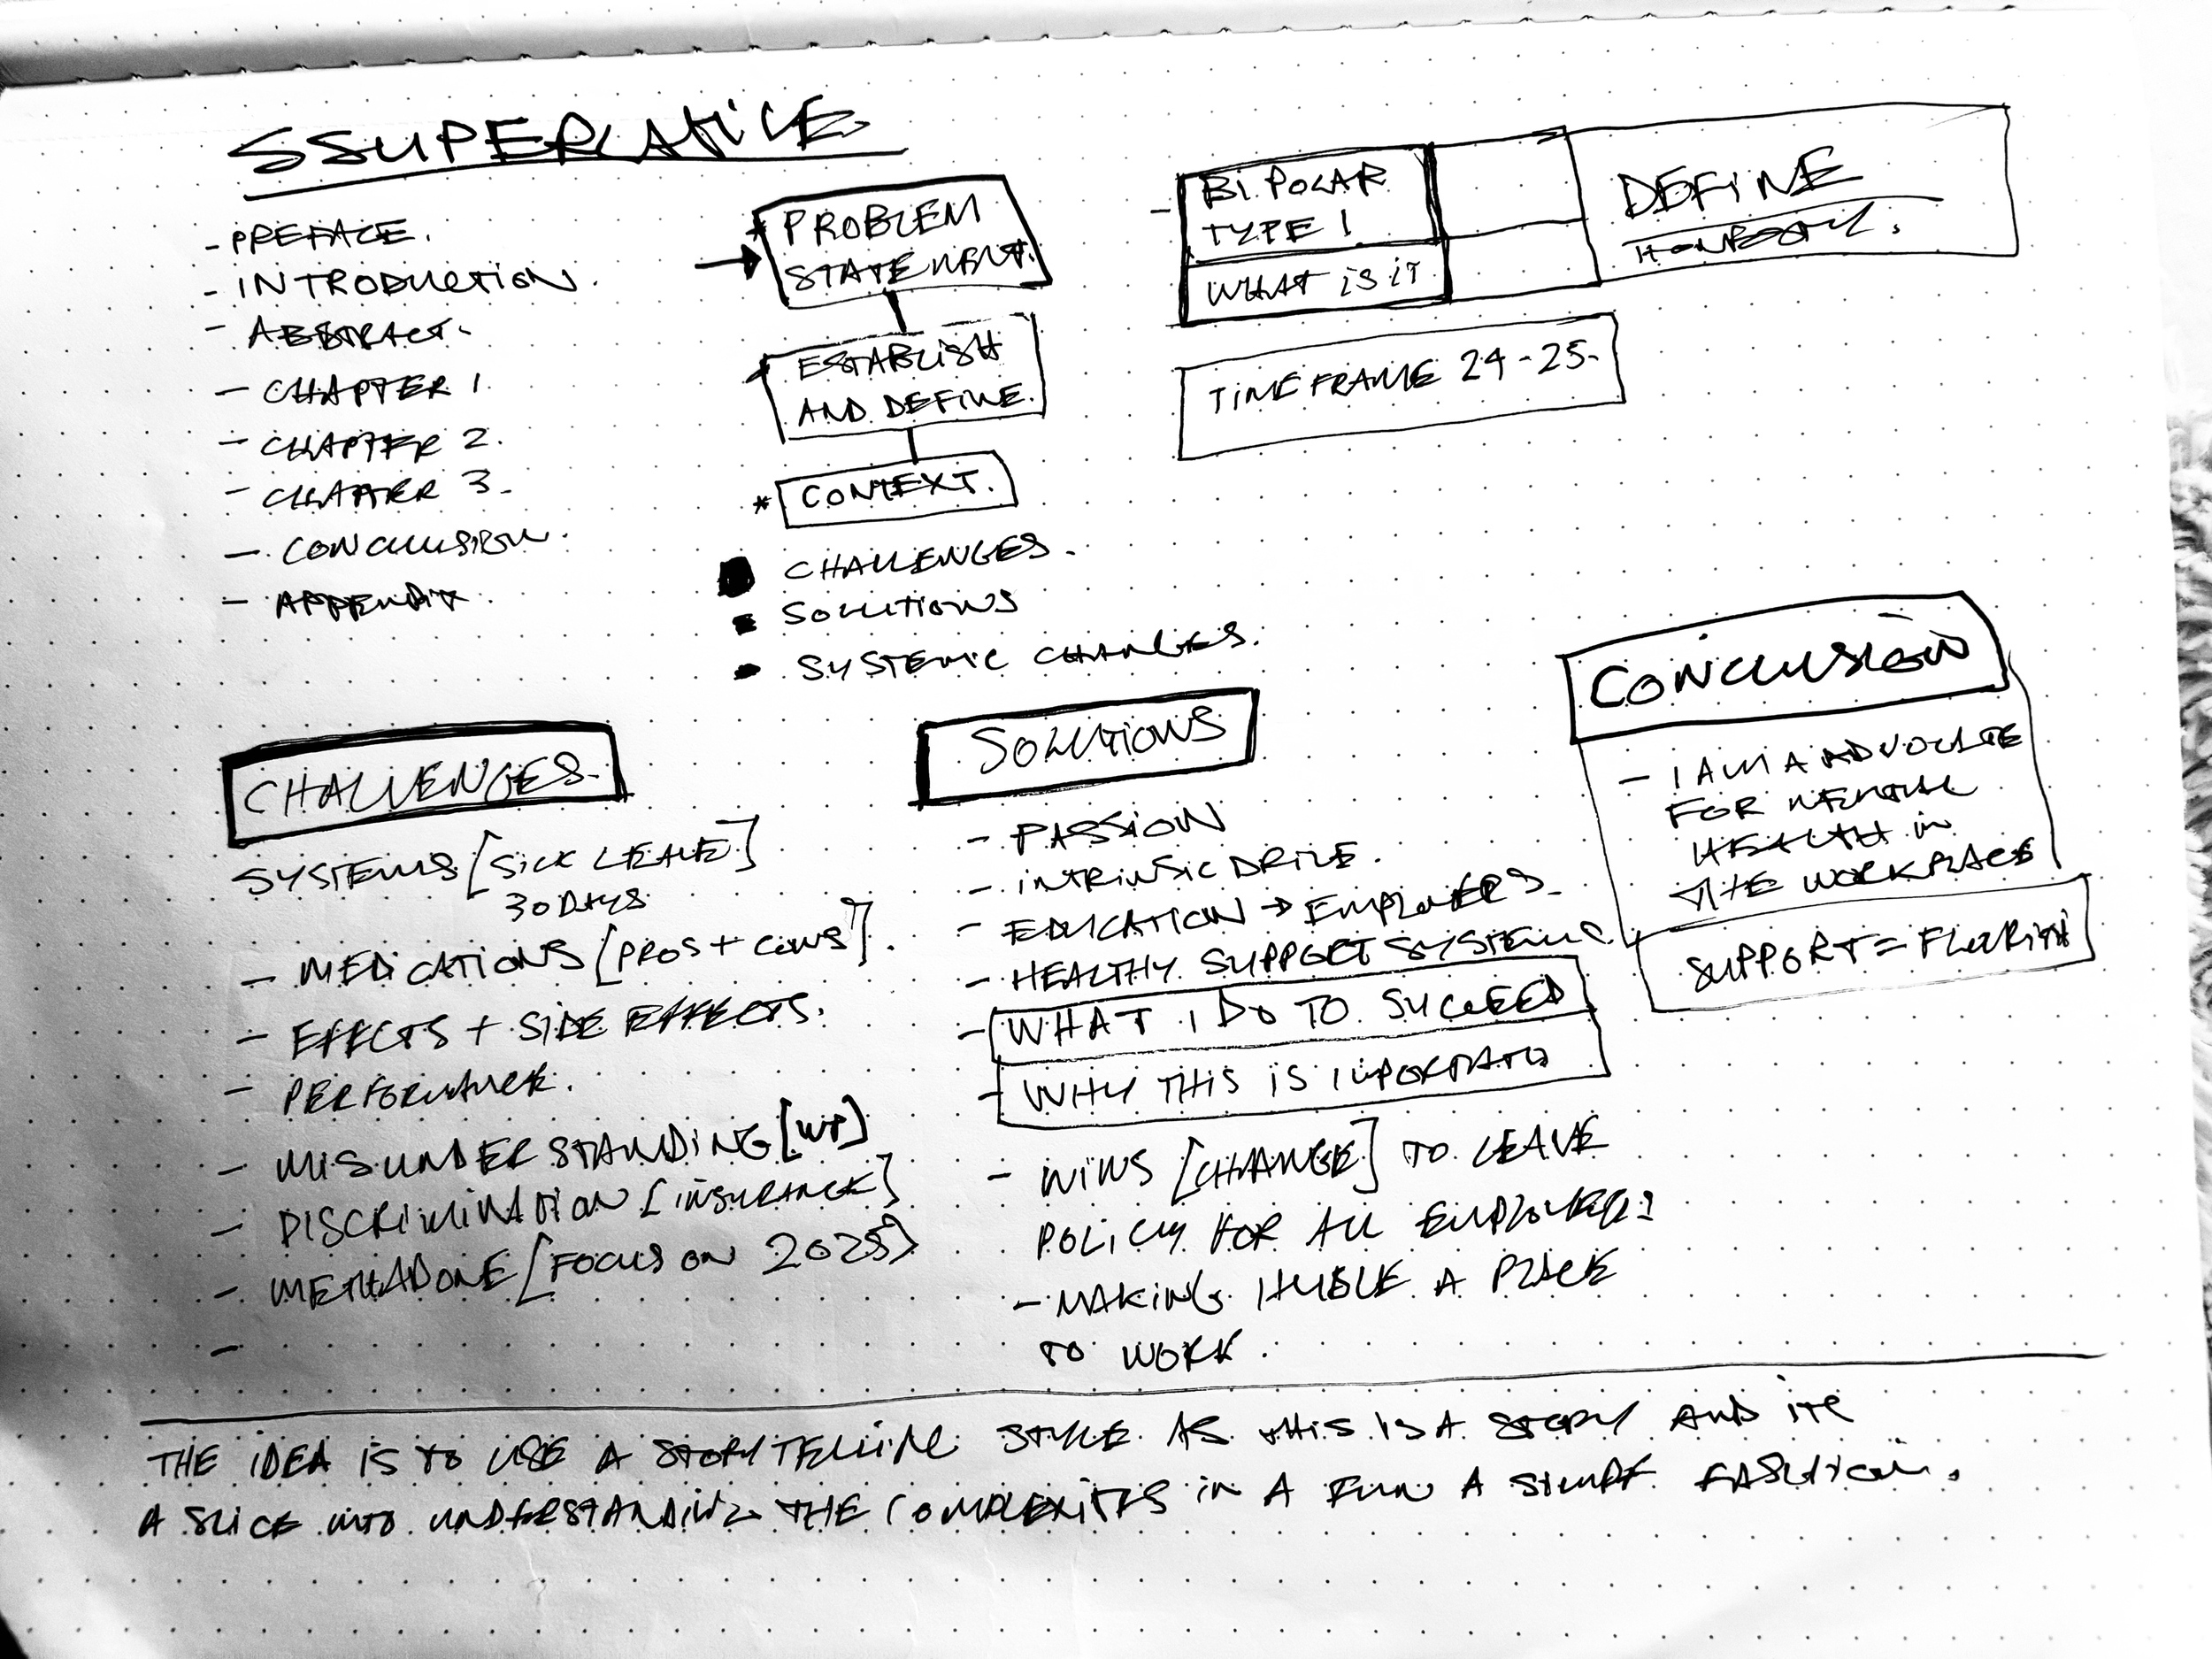 SSUPERLATIVE
- PREFACE.
- INTRODUCTION.
- ABSTRACT.
- CHAPTER 1
- CHAPTER 2.
- CHAPTER 3.
- CONCLUSION.
- APPENDIX.
* PROBLEM
STATEMENT.
* ESTABLISH
AND DEFINE.
* CONTEXT.
CHALLENGES.
SOLUTIONS
SYSTEMIC CHANGES.
- BI POLAR
TYPE 1
WHAT IS IT
DEFINE
TIMEFRAME 24-25-
CHALLENGES-
SYSTEMS [SICK LEAVE]
30 DAYS
- MEDICATIONS [PROS + CONS].
- EFFECTS + SIDE EFFECTS.
- PERFORMANCE.
- MISUNDERSTANDING [WP]
- DISCRIMINATION [INSURANCE]
- METHADONE [FOCUS ON 2025]
-
SOLUTIONS
- PASSION
- INTRINSIC DRIVE.
- EDUCATION → EMPLOYERS.
- HEALTHY SUPPORT SYSTEMS
- WHAT I DO TO SUCCEED
- WHY THIS IS IMPORTATN
- WINS [CHANGE] TO LEAVE
POLICY FOR ALL EMPLOYEES
- MAKING HUBLE A PLACE
TO WORK.
CONCLUSION
- I AM A ADVOCATE
FOR MENTAL
HEALTH IN
THE WORKPLACE
SUPPORT = FLOURISH
THE IDEA IS TO USE A STORYTELLING STYLE AS THIS IS A STORY AND ITS
A SLICE INTO UNDERSTANDING THE COMPLEXITIES IN A FUN A FASHION.